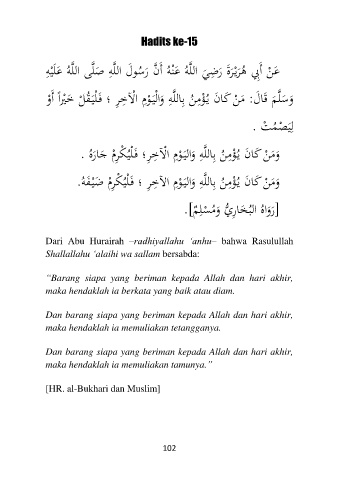 Hadits ke-15
عَنْ أَبِي هُرَيْرَةَ رَضِيَ اللَّهُ عَنْهُ أَنَّ رَسُولَ اللَّهِ صَلَّى اللَّهُ عَلَيْهِ
وَسَلَّمَ قَالَ: مَنْ كَانَ يُؤْمِنُ بِاللَّهِ وَالْيَوْمِ الْآخِرِ ؛ فَلْيَقُلْ خَيْراً أَوْ
لِيَصْمُتْ .
وَمَنْ كَانَ يُؤْمِنُ بِاللَّهِ وَالْيَوْمِ الْآخِرِ؛ فَلْيُكْرِمْ جَارَهُ .
وَمَنْ كَانَ يُؤْمِنُ بِاللَّهِ وَالْيَوْمِ الآخِرِ ؛ فَلْيُكْرِمْ ضَيْفَهُ.
[رَوَاهُ الْبُخَارِيُّ وَمُسْلِمٌ].
Dari Abu Hurairah –radhiyallahu ‘anhu– bahwa Rasulullah
Shallallahu ‘alaihi wa sallam bersabda:
“Barang siapa yang beriman kepada Allah dan hari akhir,
maka hendaklah ia berkata yang baik atau diam.
Dan barang siapa yang beriman kepada Allah dan hari akhir,
maka hendaklah ia memuliakan tetangganya.
Dan barang siapa yang beriman kepada Allah dan hari akhir,
maka hendaklah ia memuliakan tamunya.”
[HR. al-Bukhari dan Muslim]
102